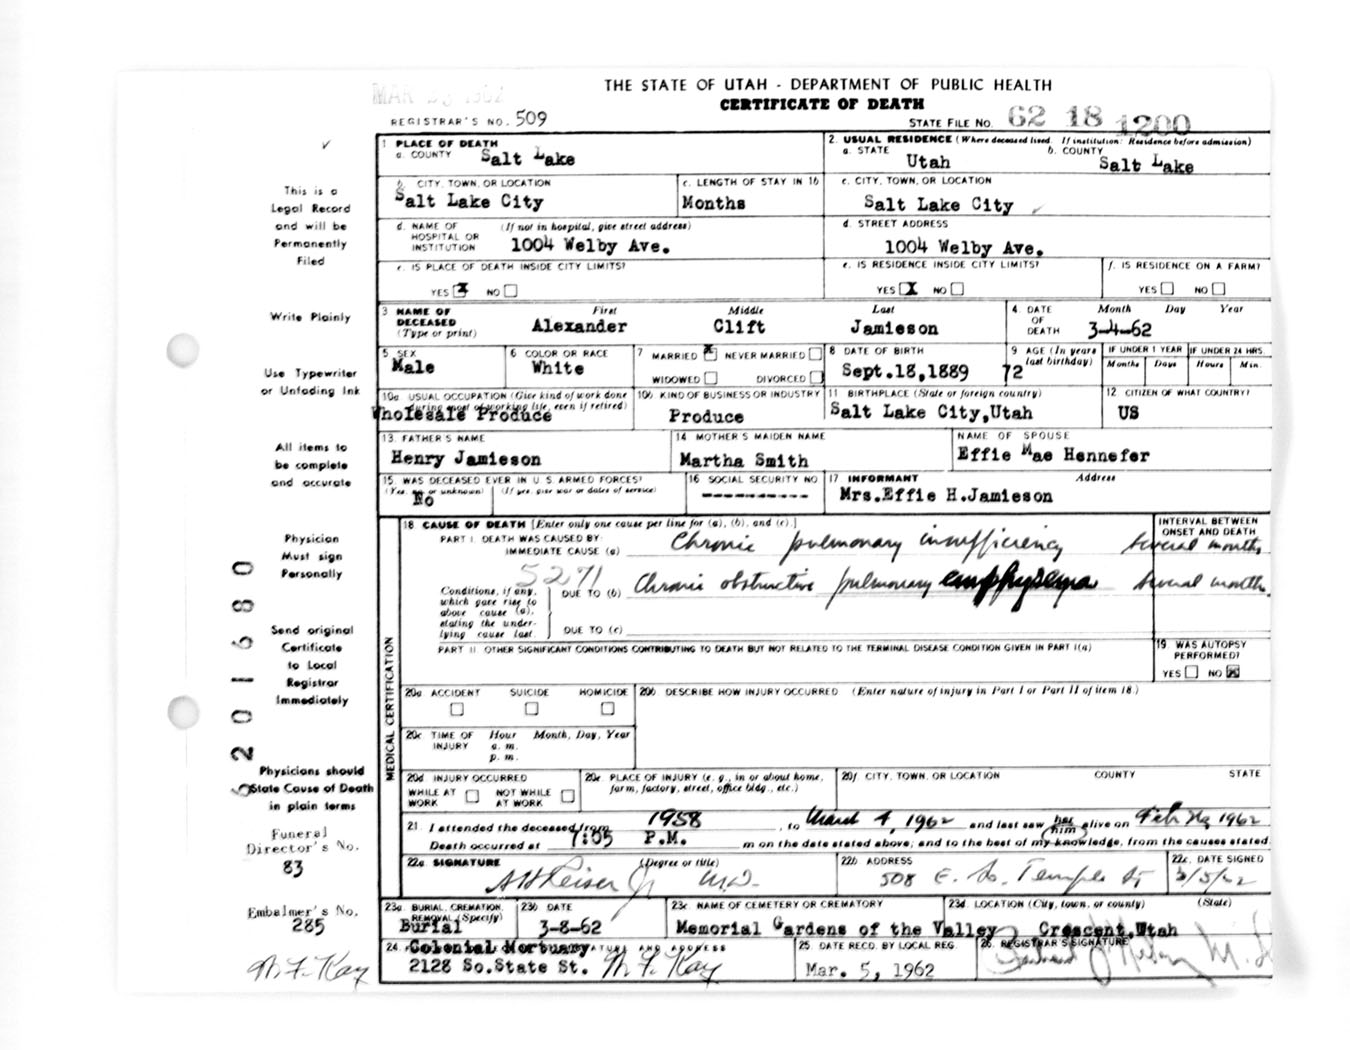 THE STATE OF UTAH - DEPARTMENT OF PUBLIC HEALTH
MAR 1962
CERTIFICATE OF DEATH
REGISTRAR'S NO. 509
STATE FILE NO. 62 18 1200
1 PLACE OF DEATH
a. COUNTY Salt Lake
2. USUAL RESIDENCE (Where deceased lived. If institution: Residence before admission)
a. STATE Utah b. COUNTY Salt Lake
This is a
Legal Record
and will be
Permanently
Filed
b. CITY, TOWN, OR LOCATION
Salt Lake City
c. LENGTH OF STAY IN 1b
Months
c. CITY, TOWN, OR LOCATION
Salt Lake City
d. NAME OF HOSPITAL OR INSTITUTION (If not in hospital, give street address)
1004 Welby Ave.
d. STREET ADDRESS
1004 Welby Ave.
e. IS PLACE OF DEATH INSIDE CITY LIMITS?
YES X NO
e. IS RESIDENCE INSIDE CITY LIMITS?
YES X NO
f. IS RESIDENCE ON A FARM?
YES NO
Write Plainly
3 NAME OF DECEASED (Type or print)
First Middle Last
Alexander Clift Jamieson
4. DATE OF DEATH Month Day Year
3-4-62
Use Typewriter
or Unfading Ink
5 SEX
Male
6 COLOR OR RACE
White
7 MARRIED X NEVER MARRIED
WIDOWED DIVORCED
8 DATE OF BIRTH
Sept.18,1889
9 AGE (In years last birthday)
72
IF UNDER 1 YEAR
Months Days
IF UNDER 24 HRS.
Hours Min.
10a USUAL OCCUPATION (Give kind of work done during most of working life, even if retired)
Wholesale Produce
10b KIND OF BUSINESS OR INDUSTRY
Produce
11 BIRTHPLACE (State or foreign country)
Salt Lake City,Utah
12 CITIZEN OF WHAT COUNTRY?
US
All items to
be complete
and accurate
13. FATHER'S NAME
Henry Jamieson
14 MOTHER'S MAIDEN NAME
Martha Smith
NAME OF SPOUSE
Effie Mae Hennefer
15. WAS DECEASED EVER IN U.S. ARMED FORCES?
(Yes, no or unknown) (If yes, give war or dates of service)
No
16 SOCIAL SECURITY NO
----------
17 INFORMANT Address
Mrs.Effie H.Jamieson
MEDICAL CERTIFICATION
18 CAUSE OF DEATH [Enter only one cause per line for (a), (b), and (c).]
INTERVAL BETWEEN ONSET AND DEATH
Physician
Must sign
Personally
PART I. DEATH WAS CAUSED BY:
IMMEDIATE CAUSE (a) Chronic pulmonary insufficiency several months
5271
DUE TO (b) Chronic obstructive pulmonary emphysema several months
Conditions, if any, which gave rise to above cause (a), stating the underlying cause last.
DUE TO (c)
Send original
Certificate
to Local
Registrar
Immediately
PART II. OTHER SIGNIFICANT CONDITIONS CONTRIBUTING TO DEATH BUT NOT RELATED TO THE TERMINAL DISEASE CONDITION GIVEN IN PART I(a)
19. WAS AUTOPSY PERFORMED?
YES NO X
20a ACCIDENT SUICIDE HOMICIDE
20b. DESCRIBE HOW INJURY OCCURRED (Enter nature of injury in Part I or Part II of item 18.)
20c TIME OF INJURY Hour Month, Day, Year
a. m.
p. m.
Physicians should
State Cause of Death
in plain terms
20d INJURY OCCURRED
WHILE AT WORK NOT WHILE AT WORK
20e. PLACE OF INJURY (e. g., in or about home, farm, factory, street, office bldg., etc.)
20f. CITY, TOWN, OR LOCATION COUNTY STATE
21. I attended the deceased from 1958, to March 4, 1962 and last saw her him alive on Feb 1962
Death occurred at 7:05 P.M. m on the date stated above; and to the best of my knowledge, from the causes stated.
Funeral
Director's No.
83
22a. SIGNATURE (Degree or title)
M.D.
22b ADDRESS
508 E. So. Temple St
22c. DATE SIGNED
3/5/62
Embalmer's No.
285
W. F. Kay
23a. BURIAL, CREMATION, REMOVAL (Specify)
Burial
23b DATE
3-8-62
23c NAME OF CEMETERY OR CREMATORY
Memorial Gardens of the Valley
23d. LOCATION (City, town, or county) (State)
Crescent,Utah
24. SIGNATURE AND ADDRESS
Colonial Mortuary
2128 So.State St. W. F. Kay
25. DATE RECD. BY LOCAL REG.
Mar. 5, 1962
26. REGISTRAR'S SIGNATURE